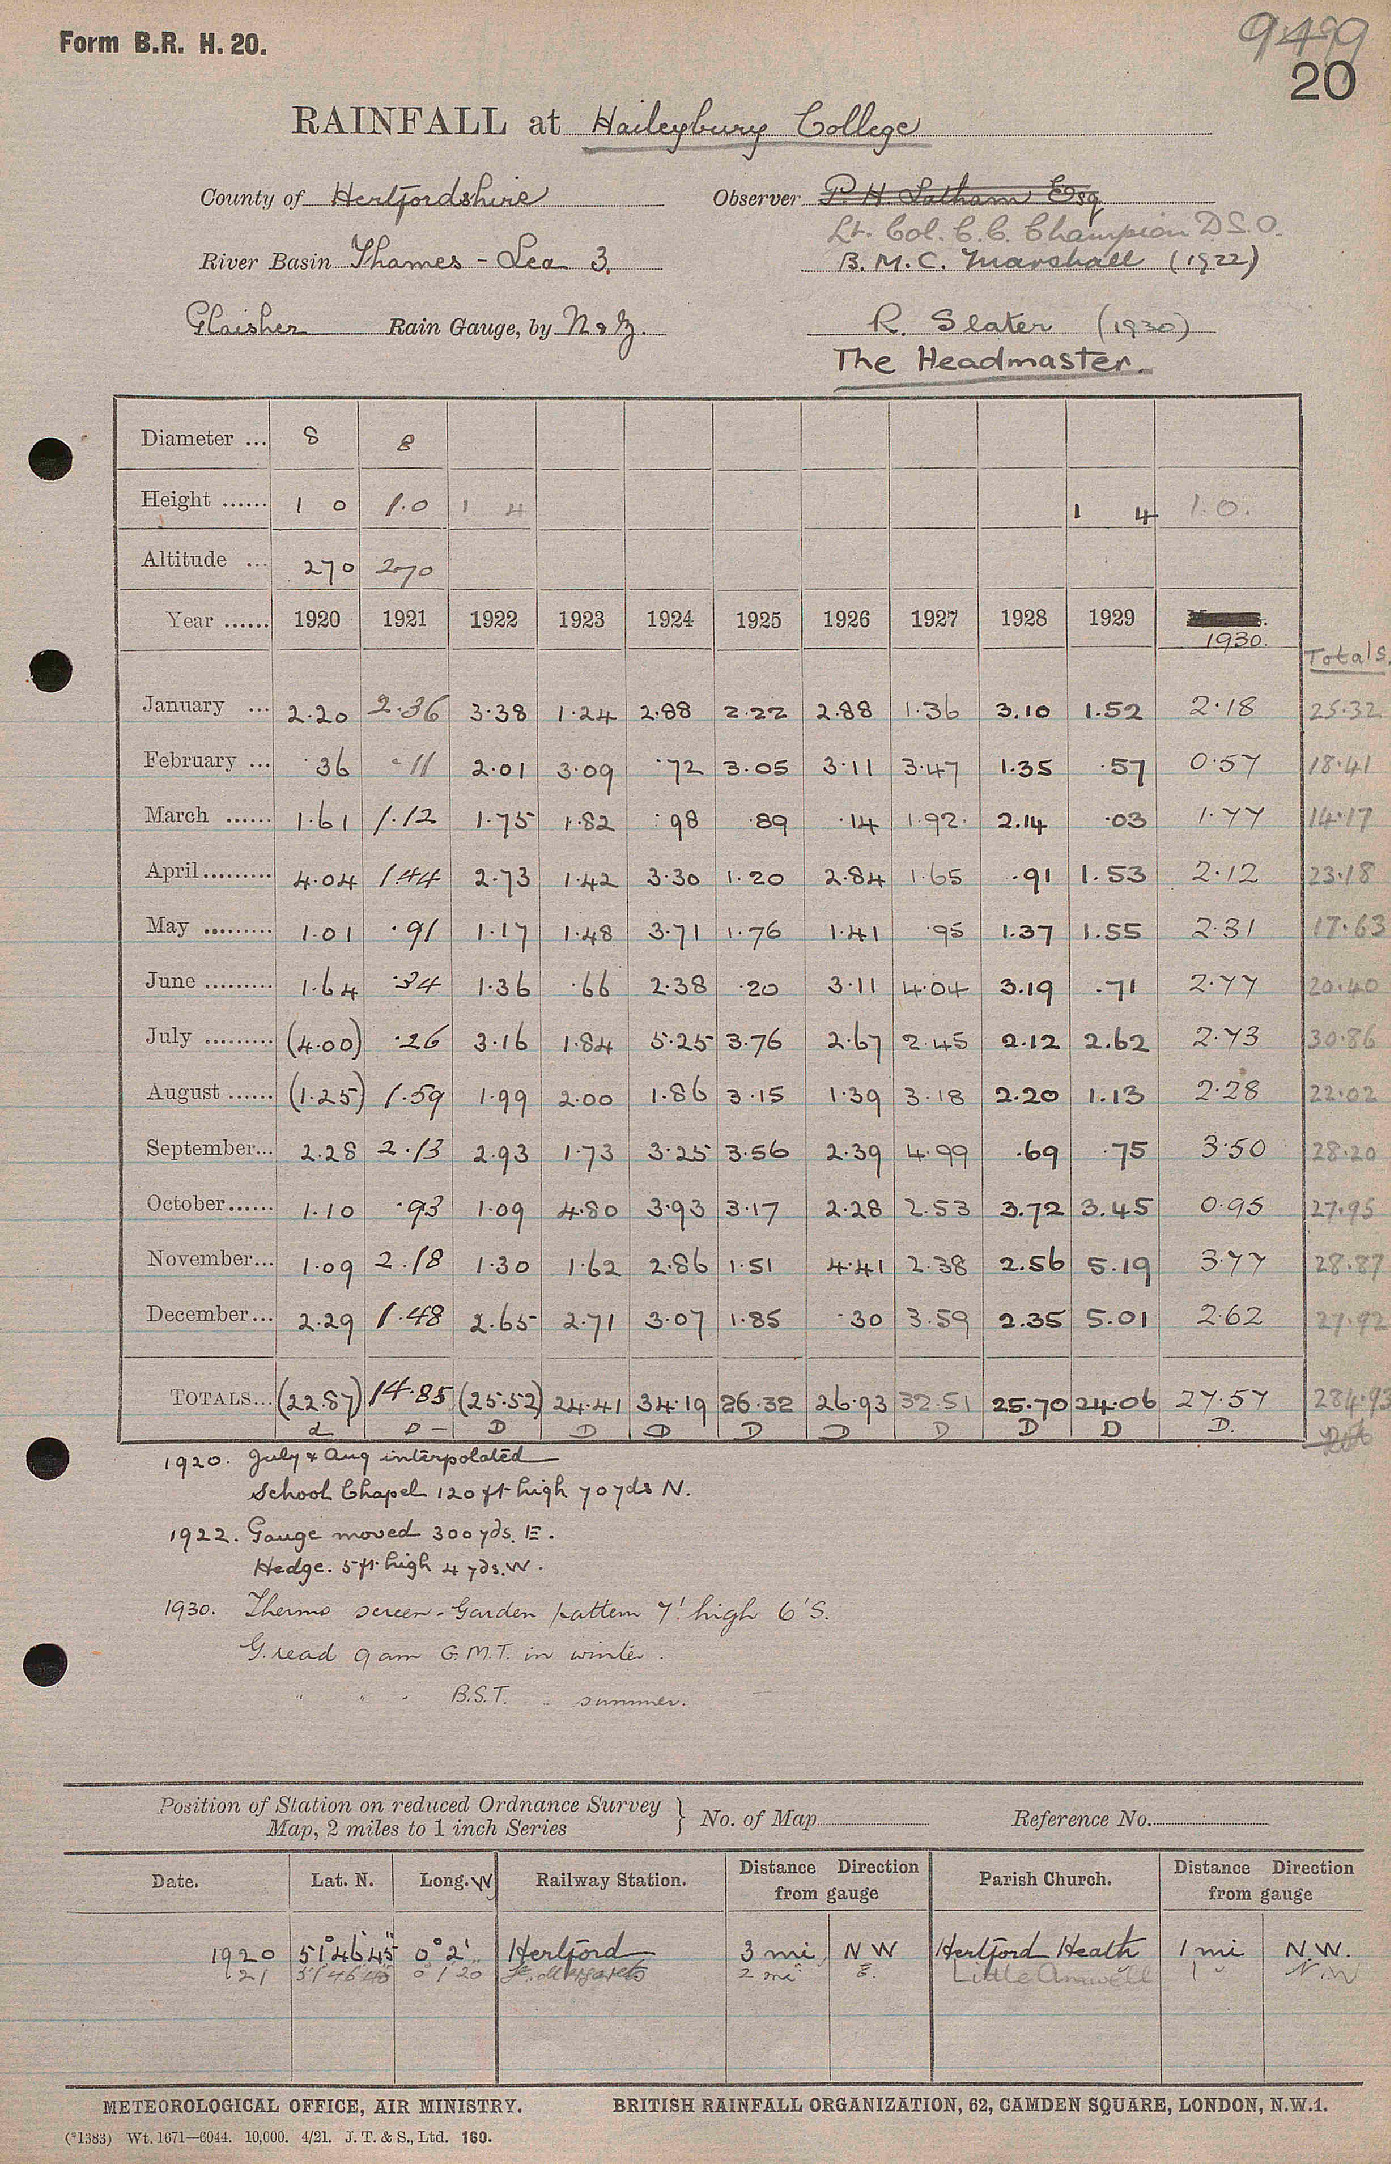 Form B.R. H. 20.
9499
20
RAINFALL at Haileybury College
County of Hertfordshire Observer P. H. Latham Esq
Lt. Col. C. C. Champion D.S.O.
River Basin Thames - Lea 3. B. M. C. Marshall (1922)
Glaisher Rain Gauge, by N & Z. R. Slater (1930)
The Headmaster.
Diameter ... 8 8
Height ...... 1 0 1.0 1 4 1 4 1.0.
Altitude ... 270 270
Year ...... 1920 1921 1922 1923 1924 1925 1926 1927 1928 1929 1930. Totals.
January ... 2.20 2.36 3.38 1.24 2.88 2.22 2.88 1.36 3.10 1.52 2.18 25.32
February ... .36 .11 2.01 3.09 .72 3.05 3.11 3.47 1.35 .57 0.57 18.41
March ...... 1.61 1.12 1.75 1.82 .98 .89 .14 1.92 2.14 .03 1.77 14.17
April ......... 4.04 1.44 2.73 1.42 3.30 1.20 2.84 1.65 .91 1.53 2.12 23.18
May ......... 1.01 .91 1.17 1.48 3.71 1.76 1.41 .95 1.37 1.55 2.31 17.63
June ......... 1.64 .34 1.36 .66 2.38 .20 3.11 4.04 3.19 .71 2.77 20.40
July ......... (4.00) .26 3.16 1.84 5.25 3.76 2.67 2.45 2.12 2.62 2.73 30.86
August ...... (1.25) 1.59 1.99 2.00 1.86 3.15 1.39 3.18 2.20 1.13 2.28 22.02
September... 2.28 2.13 2.93 1.73 3.25 3.56 2.39 4.99 .69 .75 3.50 28.20
October...... 1.10 .93 1.09 4.80 3.93 3.17 2.28 2.53 3.72 3.45 0.95 27.95
November... 1.09 2.18 1.30 1.62 2.86 1.51 4.41 2.38 2.56 5.19 3.77 28.87
December... 2.29 1.48 2.65 2.71 3.07 1.85 .30 3.59 2.35 5.01 2.62 27.92
TOTALS... (22.87) 14.85 (25.52) 24.41 34.19 26.32 26.93 32.51 25.70 24.06 27.57 284.93
d D - D D D D D D D D D.
1920. July & Aug interpolated
School Chapel 120 ft high 70 yds N.
1922. Gauge moved 300 yds. E.
Hedge. 5 ft high 4 yds. W.
1930. Thermo screen - Garden pattern 7' high 6' S.
G. read 9 am G.M.T. in winter.
" " " B.S.T. " summer.
Position of Station on reduced Ordnance Survey
Map, 2 miles to 1 inch Series } No. of Map Reference No.
Date. Lat. N. Long. W Railway Station. Distance Direction from gauge Parish Church. Distance Direction from gauge
1920 51° 46' 45" 0° 2' Hertford 3 mi N W Hertford Heath 1 mi N.W.
21 51 46 0 1 20 St. Margarets 2 mi E. Little Amwell 1 " N W
METEOROLOGICAL OFFICE, AIR MINISTRY. BRITISH RAINFALL ORGANIZATION, 62, CAMDEN SQUARE, LONDON, N.W.1.
(*1383) Wt. 1671—6044. 10,000. 4/21. J. T. & S., Ltd. 160.